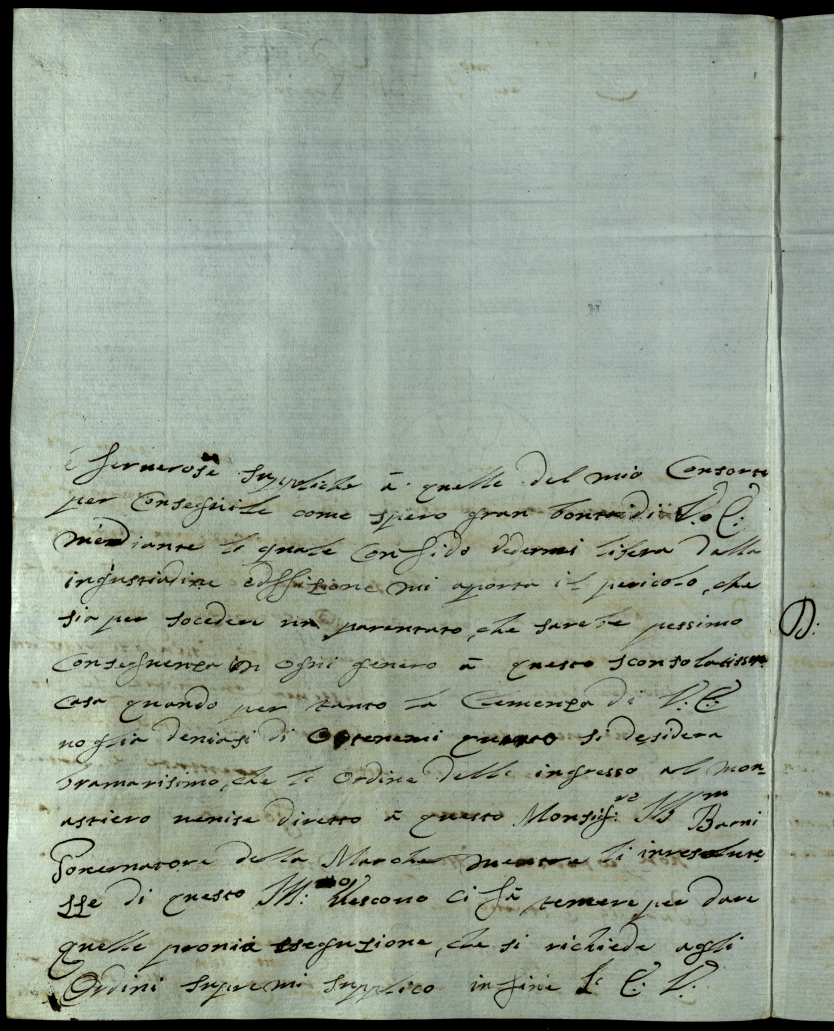 e fervorose suppliche à quelle del mio Consorte
per Conseguile come spero gran bontà di V. E:
mediante la quale Confido vedermi libera dalla
ingustiadine che mi aporta il pericolo, che
sia per soceder un parentato, che sarebe pessimo
Conseguenza in ogni genero à questo sconsolatissm
casa quando per tanto la Clemenza di V. E
voglia deniasi di Otenerni quanto si desidera
bramarisimo, che l' Ordine delle ingresso al mon=
astiero venise diretto à questo Monsig:re Ill:m Barni
Governatore della Marcha mentre li inresolute
sse di questo Ill:mo Vescovo ci fà temere per dare
quelle pronia essegusione, che si richiede agli
Ordini supremi supplico infine L' E. V.
D: